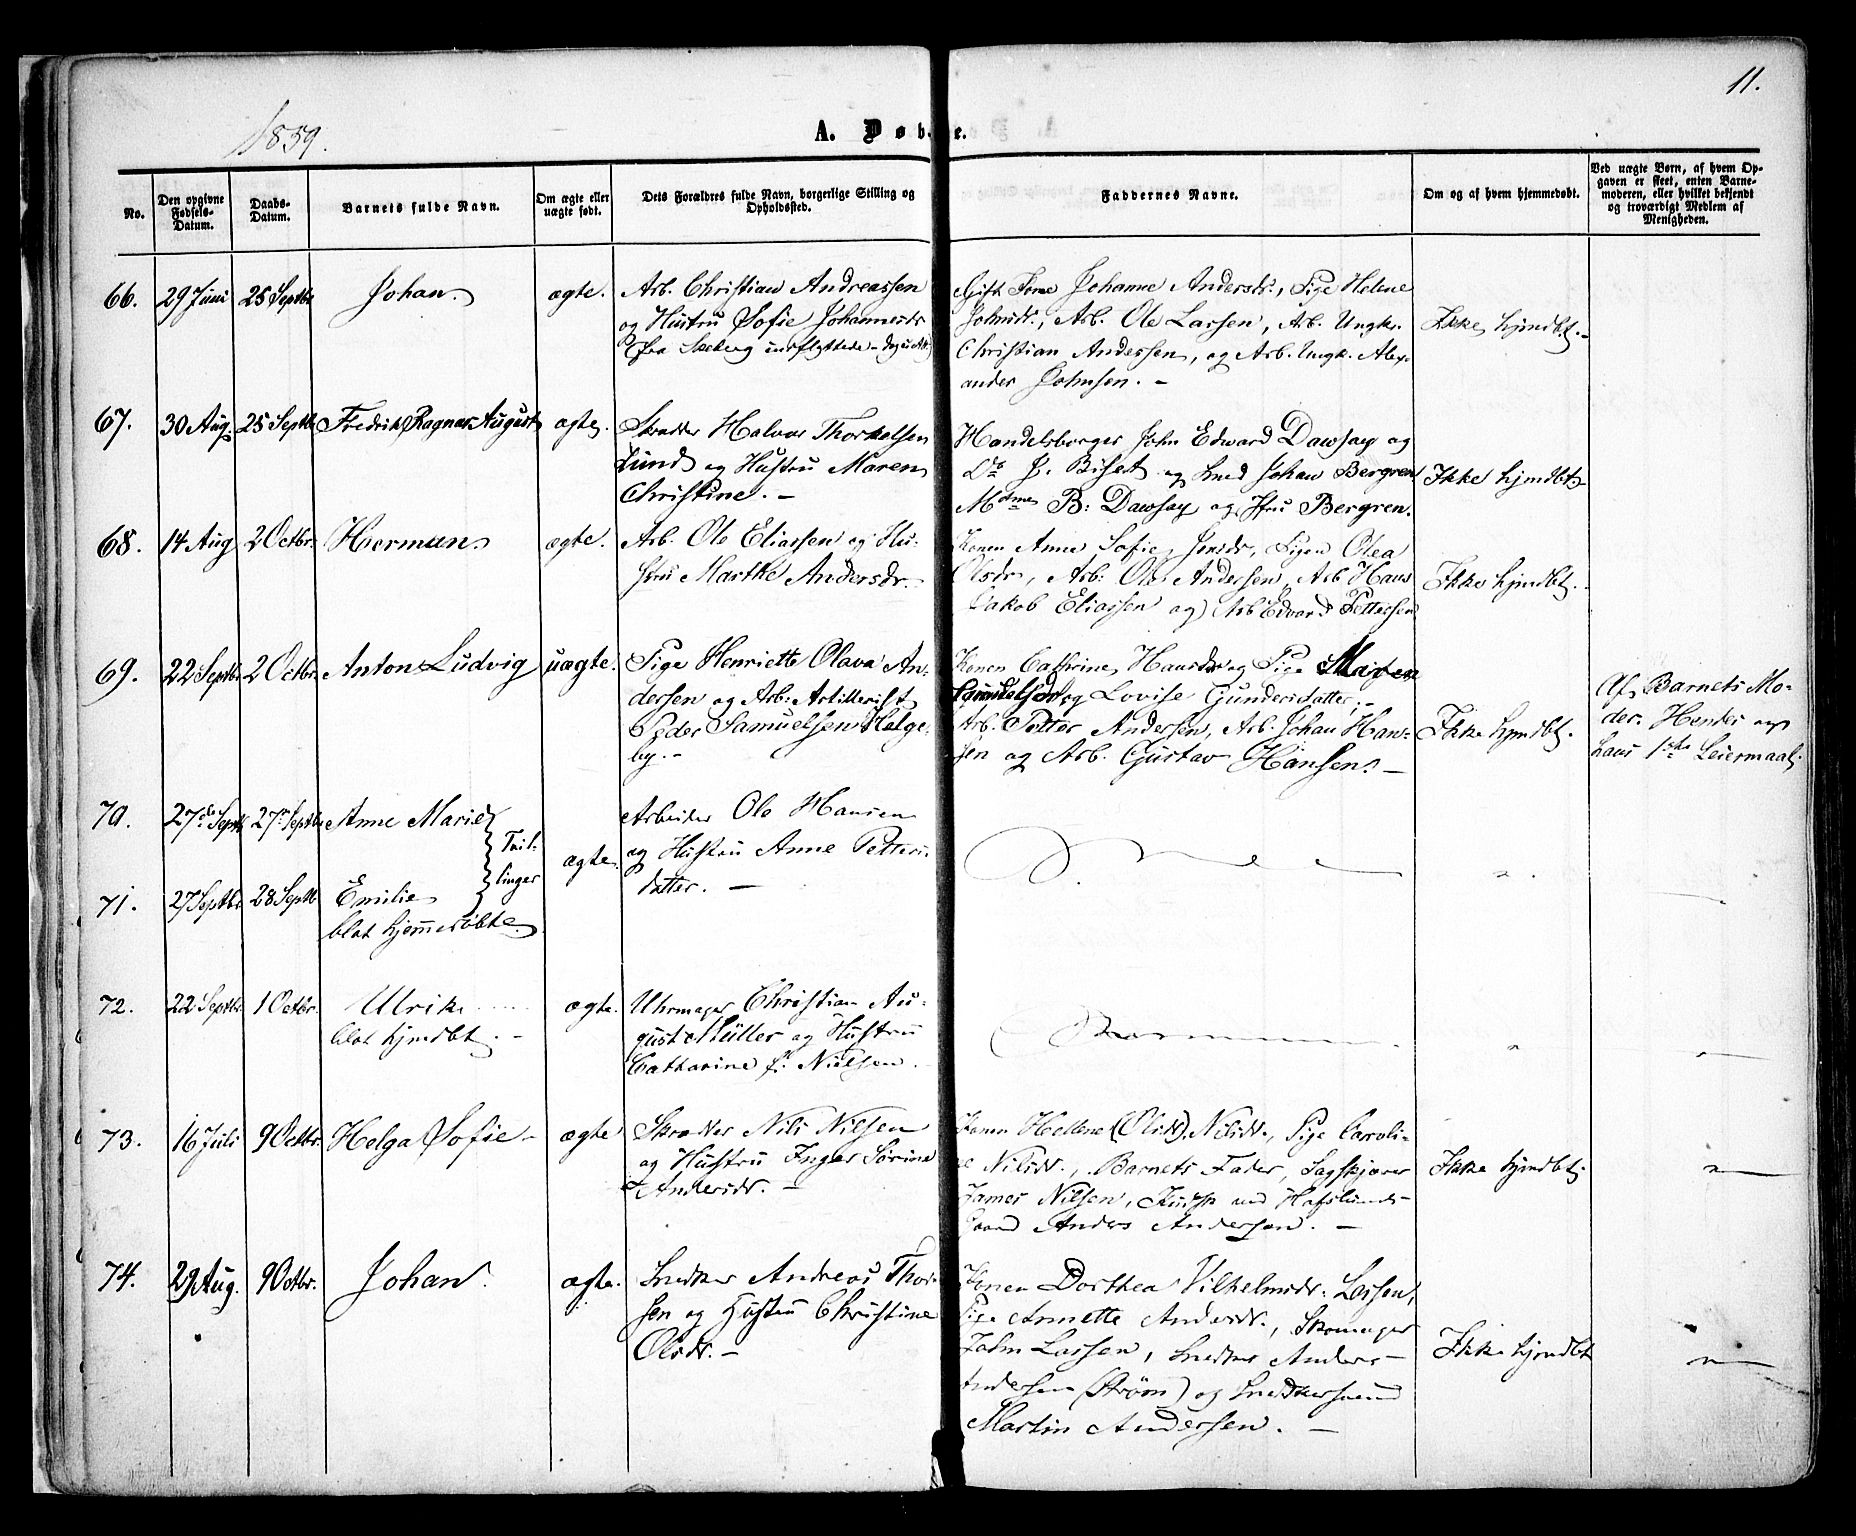 11.
1859.
A. Døbte.
No.
Den opgivne Fødsels-Datum.
Daabs-Datum.
Barnets fulde Navn.
Om ægte eller uægte født.
Dets Forældres fulde Navn, borgerlige Stilling og Opholdssted.
Faddernes Navne.
Om og af hvem hjemmedøbt.
Ved uægte Børn, af hvem Op-
gaven er skeet, enten Barne-
moderen, eller hvilket bekjendt
og troværdigt Medlem af
Menigheden.
66. 29 Juni 25 Septbr Johan. ægte.
Arb. Christian Andreassen
og Hustru Sofie Johannesdr
Gift Kone Johanne Andersdr., Pige Helene
Johnsdr., Arb. Ole Larsen, Arb. Ungk.
Christian Andersen, og Arb. Ungk. Alex-
ander Johnsen. –
Ikke hjmdbt. –
67. 30 Aug. 25 Septbr Fredrik Ragnar August ægte.
Skrædder Halvor Thorkelsen
Lund og Hustru Maren
Christine. –
Handelsborger John Edward Dawsay og
Do J. Biset og Smed Johan Bergren
Mdme B: Dawsay og Fru Bergren.
Ikke hjmdbt
68. 14 Aug 2 Octbr. Herman ægte.
Arb. Ole Eliassen og Hu-
stru Marthe Andersdr. –
Konen Anne Sofie Jensdr, Pigen Olea
Olsdr, Arb: Ole Andersen, Arb Hans
Jakob Eliassen og Arb Edvard Pettersen
Ikke hjmdbt.
69. 22 Septbr 2 Octbr. Anton Ludvig uægte.
Pige Henriette Olava An-
dersen og Arb: Artillerist
Peder Samuelsen Helge-
by. –
Konen Cathrine Hansdr og Pige Maren
Samuelsen og Lovise Gundersdatter, –
Arb. Petter Andersen, Arb. Johan Han-
sen og Arb. Gustav Hansen. –
Ikke hjmdbt.
Af Barnets Mo-
der. Hendes og
hans 1ste Leiermaal.
70. 27de Septbr 27de Septbr Anne Marie
Tvil-
linger
ægte.
Arbeider Ole Hansen
og Hustru Anne Petters-
datter. –
71. 27 Septbr. 28 Septbr Emilie
blot hjemmedøbte
72. 22 Septbr. 1 Octbr. Ulrik
blot hjmdbt. –
ægte.
Uhrmager Christian Au-
gust Müller og Hustru
Catharine f. Nielsen.
73. 16 Juli 9 Octbr. Helga Sofie – ægte
Skrædder Nils Nilsen
og Hustru Inger Sørine
Andersdr. –
Konen Hellene (Olsdr) Nilsdr., Pige Caroli-
ne Nilsdr., Barnets Fader, Sagskjærer
James Nilsen, Kudsk ved Hafslunds-
Gaard Anders Andersen. –
Ikke hjmdbt
74. 29 Aug. 9 Octbr. Johan. ægte.
Snedker Andreas Thor-
sen og Hustru Christine
Olsdr. –
Konen Dorthea Vilhelmsdr. Larsen,
Pige Annette Andersdr., Skomager
John Larsen, Snedker Anders
Andersen (Strøm) og Snedkersvend
Martin Andersen. –
Ikke hjmdbt